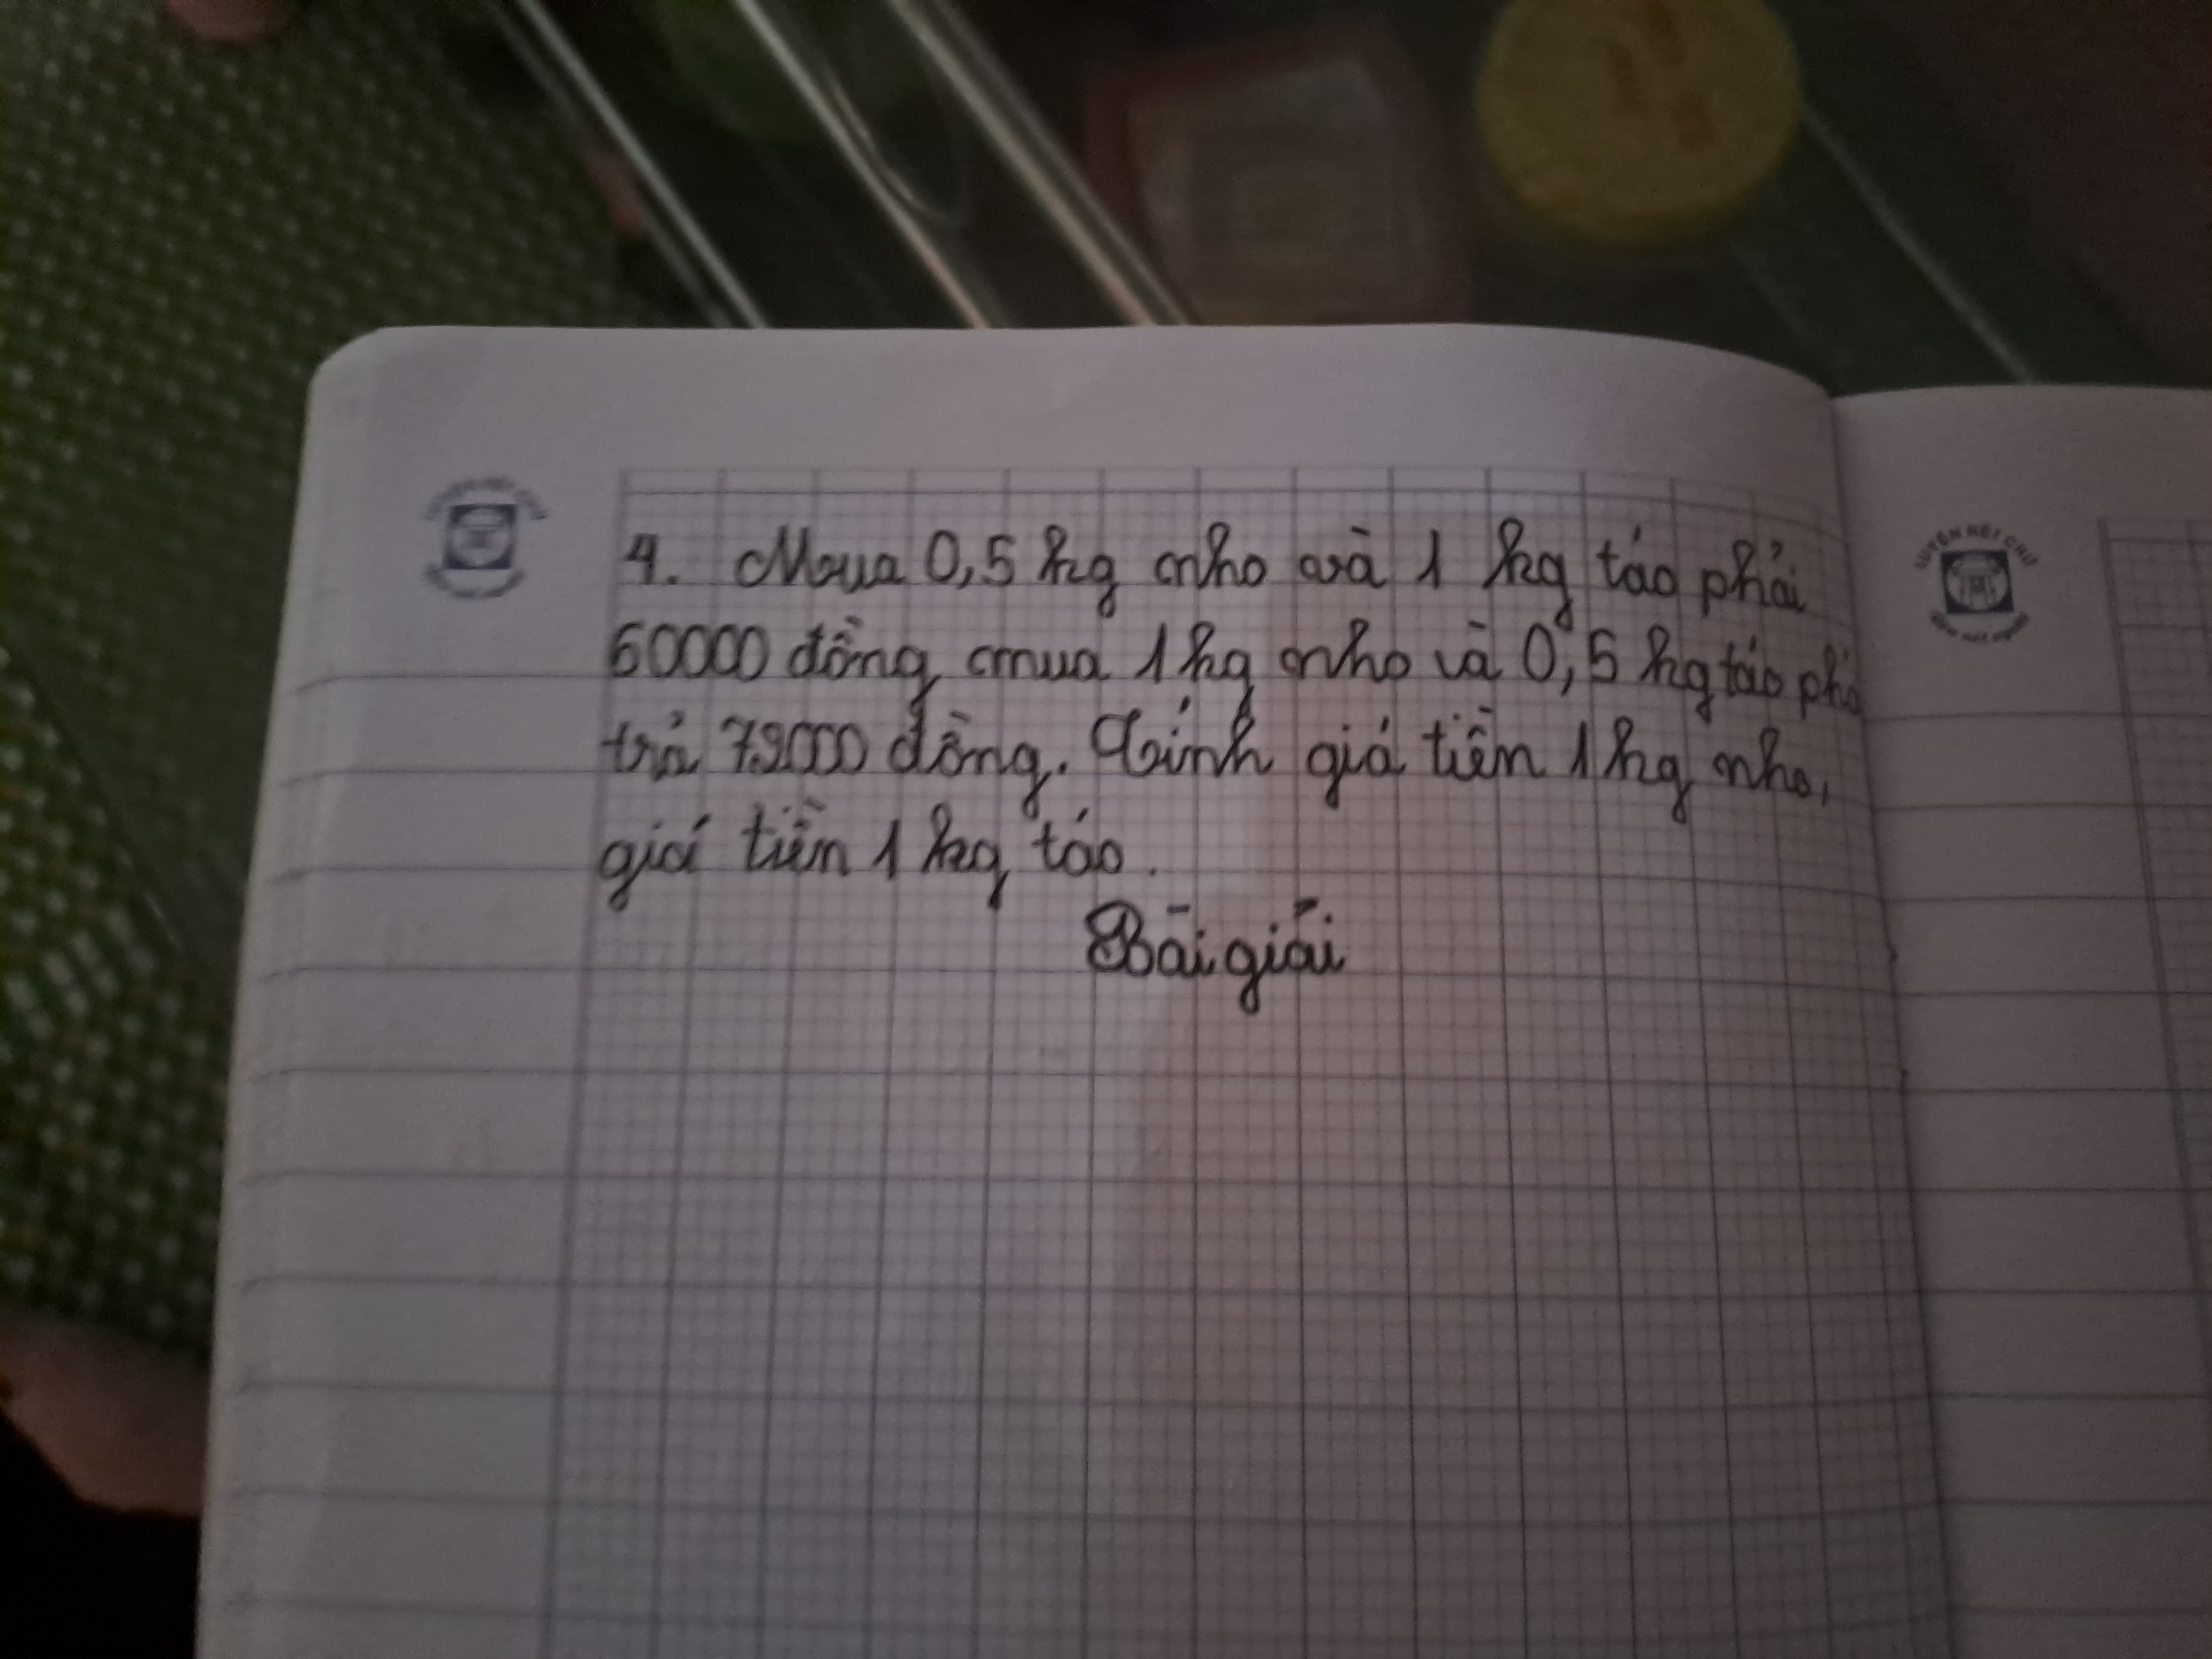 4. Mua 0,5 kg nho và 1 kg táo phải
60000 đồng, mua 1 kg nho và 0,5 kg táo phả
trả 72000 đồng. Tính giá tiền 1 kg nho,
giá tiền 1 kg táo.
Bài giải
LUYỆN NÉT CHỮ